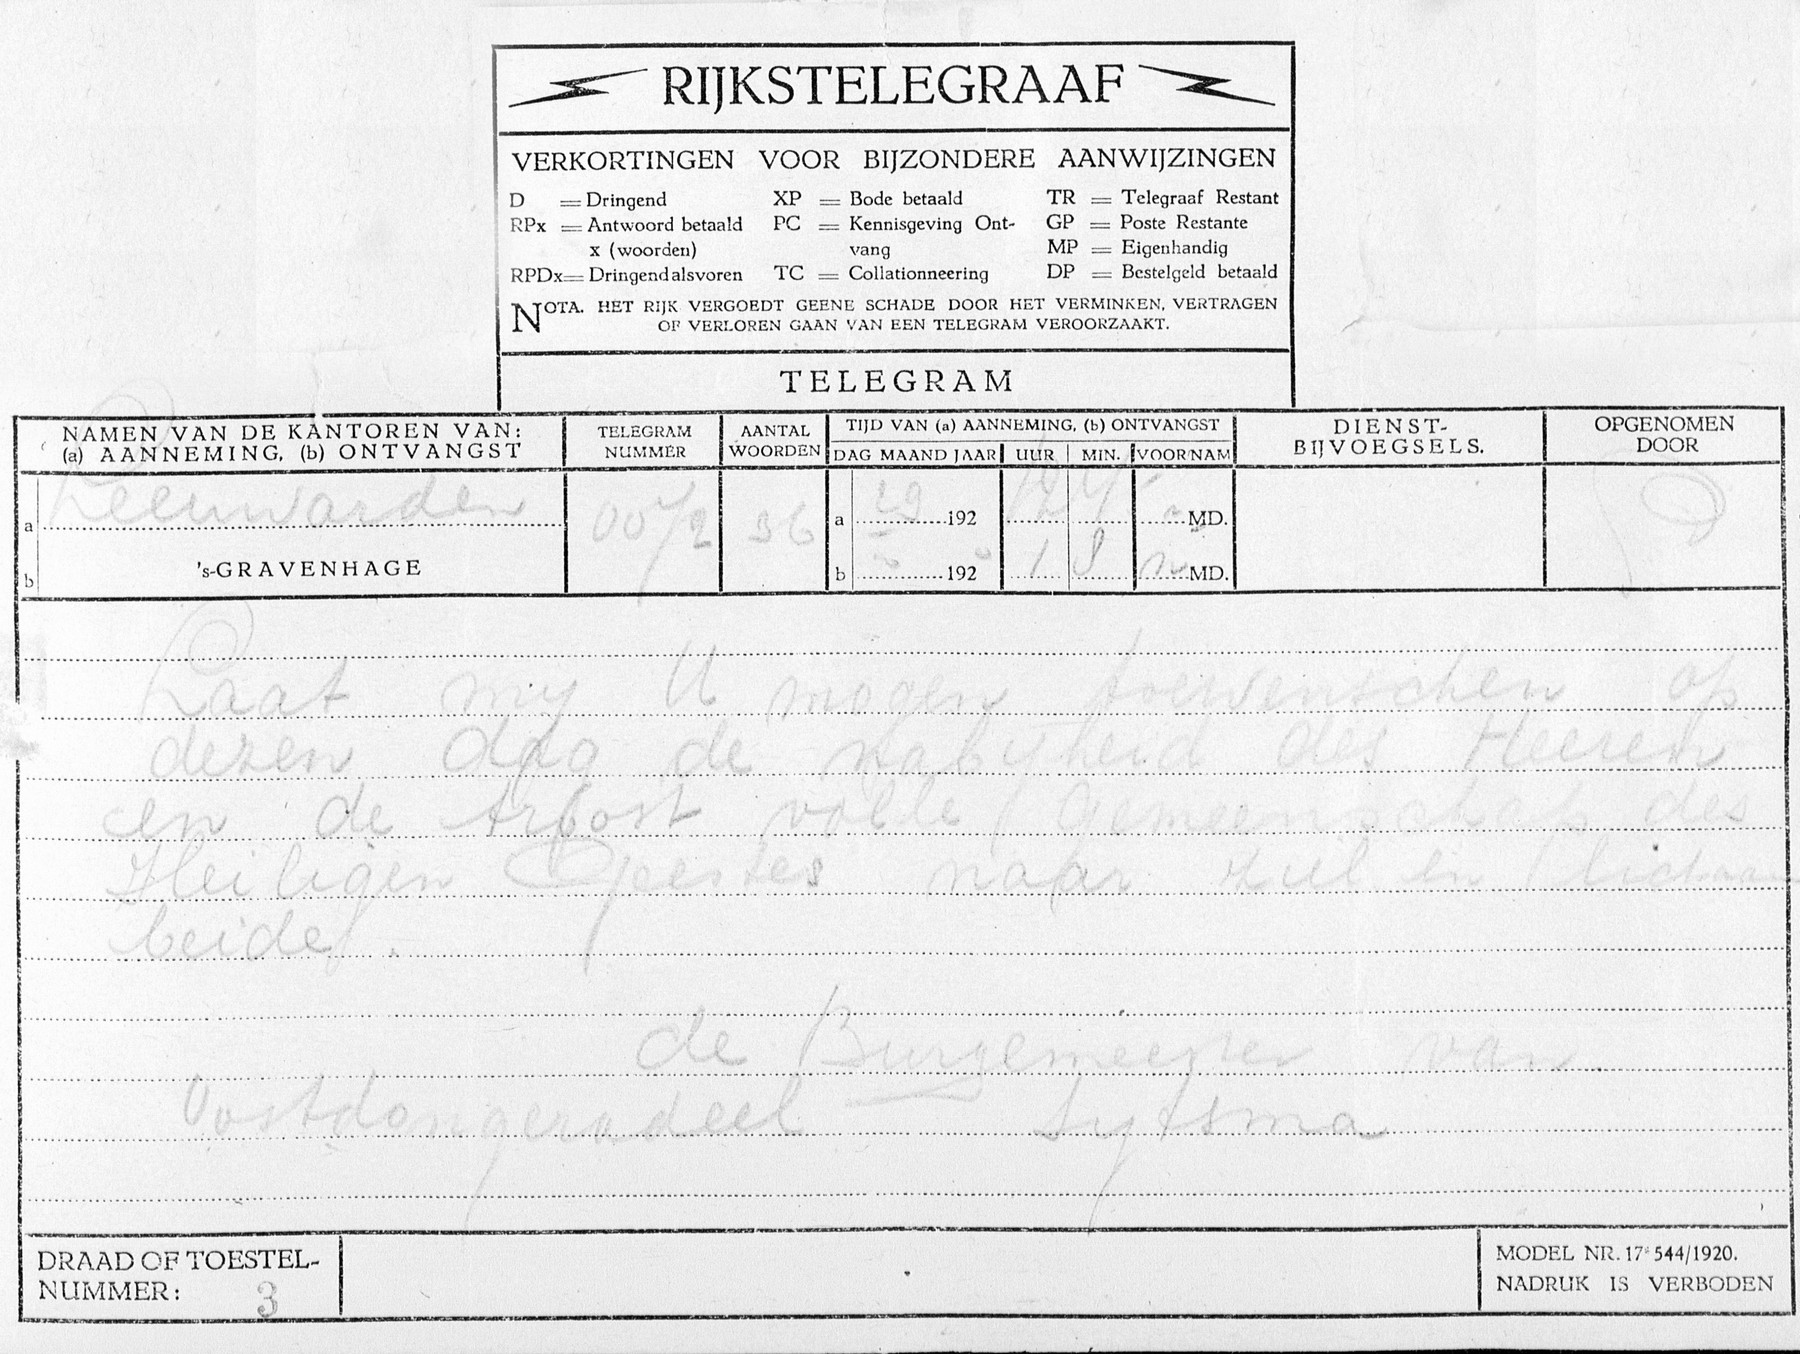 RIJKSTELEGRAAF
VERKORTINGEN VOOR BIJZONDERE AANWIJZINGEN
D = Dringend XP = Bode betaald TR = Telegraaf Restant
RPx = Antwoord betaald PC = Kennisgeving Ont- GP = Poste Restante
x (woorden) vang MP = Eigenhandig
RPDx = Dringend alsvoren TC = Collationneering DP = Bestelgeld betaald
NOTA. HET RIJK VERGOEDT GEENE SCHADE DOOR HET VERMINKEN, VERTRAGEN
OF VERLOREN GAAN VAN EEN TELEGRAM VEROORZAAKT.
TELEGRAM
NAMEN VAN DE KANTOREN VAN:
(a) AANNEMING, (b) ONTVANGST
TELEGRAM
NUMMER
AANTAL
WOORDEN
TIJD VAN (a) AANNEMING, (b) ONTVANGST
DAG MAAND JAAR UUR MIN. VOOR/NAM
DIENST-
BIJVOEGSELS.
OPGENOMEN
DOOR
a Leeuwarden 36 a 29 192 MD.
b 's-GRAVENHAGE b 192 1 8 n MD.
Laat my U mogen toewenschen op
dezen dag de nabyheid des Heeren
en de troost volle gemeenschap des
Heiligen Geestes naar ziel en lichaam
beide.
de Burgemeester van
Oostdongeradeel Sytsma
DRAAD OF TOESTEL-
NUMMER: 3
MODEL NR. 17ᵉ 544/1920.
NADRUK IS VERBODEN